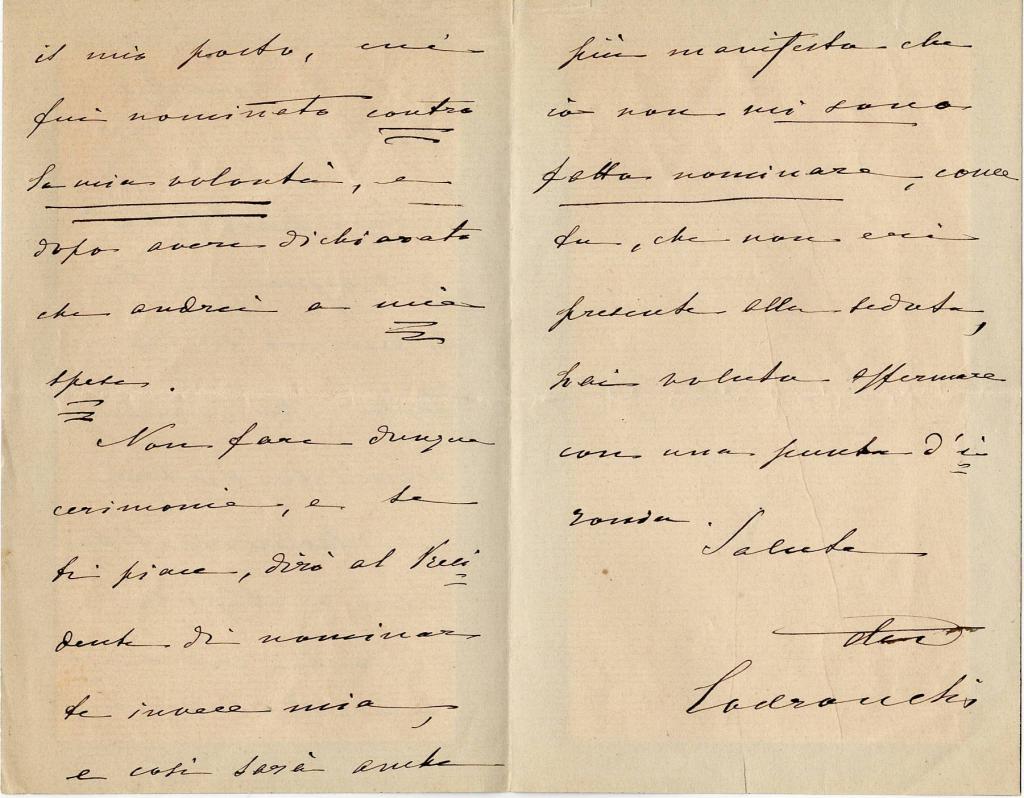 il mio posto, cui
fui nominato contro
la mia volontà, e
dopo avere dichiarato
che andrei a mie
spese.
Non fare dunque
cerimonie, e se
ti piace, dirò al Presi
dente di nominar
te invece mia,
e così sarà anche
più manifesto che
io non mi sono
fatto nominare, come
tu, che non eri
presente alla seduta,
hai voluto affermare
con una punta d'i
ronia.
Saluta
Codronchi